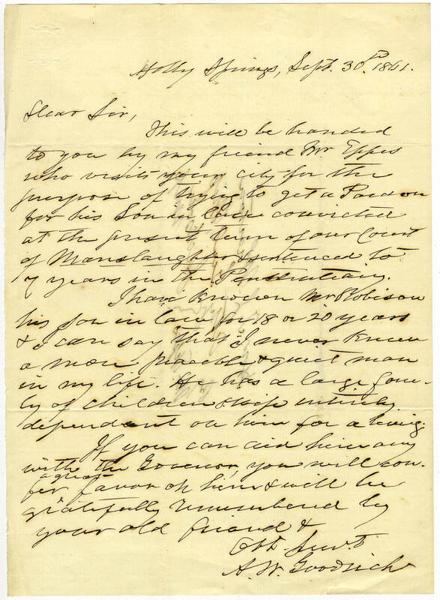 Holly Springs, Sept. 30th 1861.
Dear Sir,
This will be handed
to you by my friend Mr Eppes
who visits your city for the
purpose of trying to get a Pardon
for his Son in law convicted
at the present term of our Court
of Manslaughter & sentenced to
7 years in the Penitentiary.
I have known Mr Robison
his son in law for 18 or 20 years
& I can say that I never knew
a more peacable & quiet man
in my life. He has a large fam-
ily of children & wife entirely
dependent on him for a living.
If you can aid him any
with the Governor, you will con-
fer a great favor on him & will be
gratefully remembered by
your old friend &
Obt Servt
A. W. Goodrich